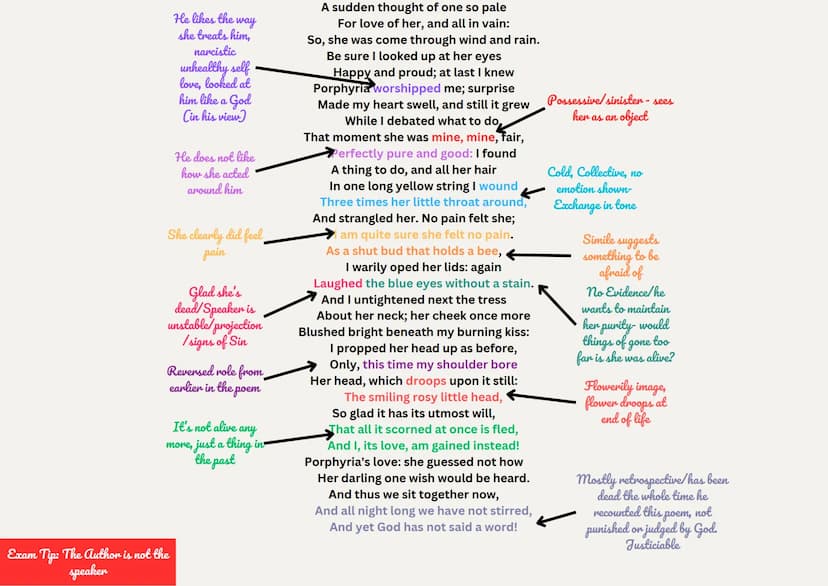 A sudden thought of one so pale
For love of her, and all in vain:
So, she was come through wind and rain.
Be sure I looked up at her eyes
Happy and proud; at last I knew
Porphyria worshipped me; surprise
Made my heart swell, and still it grew
While I debated what to do.
That moment she was mine, mine, fair,
Perfectly pure and good: I found
A thing to do, and all her hair
In one long yellow string I wound
Three times her little throat around,
And strangled her. No pain felt she;
I am quite sure she felt no pain.
As a shut bud that holds a bee,
I warily oped her lids: again
Laughed the blue eyes without a stain.
And I untightened next the tress
About her neck; her cheek once more
Blushed bright beneath my burning kiss:
I propped her head up as before,
Only, this time my shoulder bore
Her head, which droops upon it still:
The smiling rosy little head,
So glad it has its utmost will,
That all it scorned at once is fled,
And I, its love, am gained instead!
Porphyria's love: she guessed not how
Her darling one wish would be heard.
And thus we sit together now,
And all night long we have not stirred,
And yet God has not said a word!
He likes the way
she treats him,
narcistic
unhealthy self
love, looked at
him like a God
(in his view)
He does not like
how she acted
around him
She clearly did feel
pain
Glad she's
dead/Speaker is
unstable/projection
/signs of Sin
Reversed role from
earlier in the poem
It's not alive any
more, just a thing in
the past
Possessive/sinister - sees
her as an object
Cold, Collective, no
emotion shown-
Exchange in tone
Simile suggests
something to be
afraid of
No Evidence/he
wants to maintain
her purity- would
things of gone too
far is she was alive?
Flowerily image,
flower droops at
end of life
Mostly retrospective/has been
dead the whole time he
recounted this poem, not
punished or judged by God.
Justiciable
Exam Tip: The Author is not the
speaker